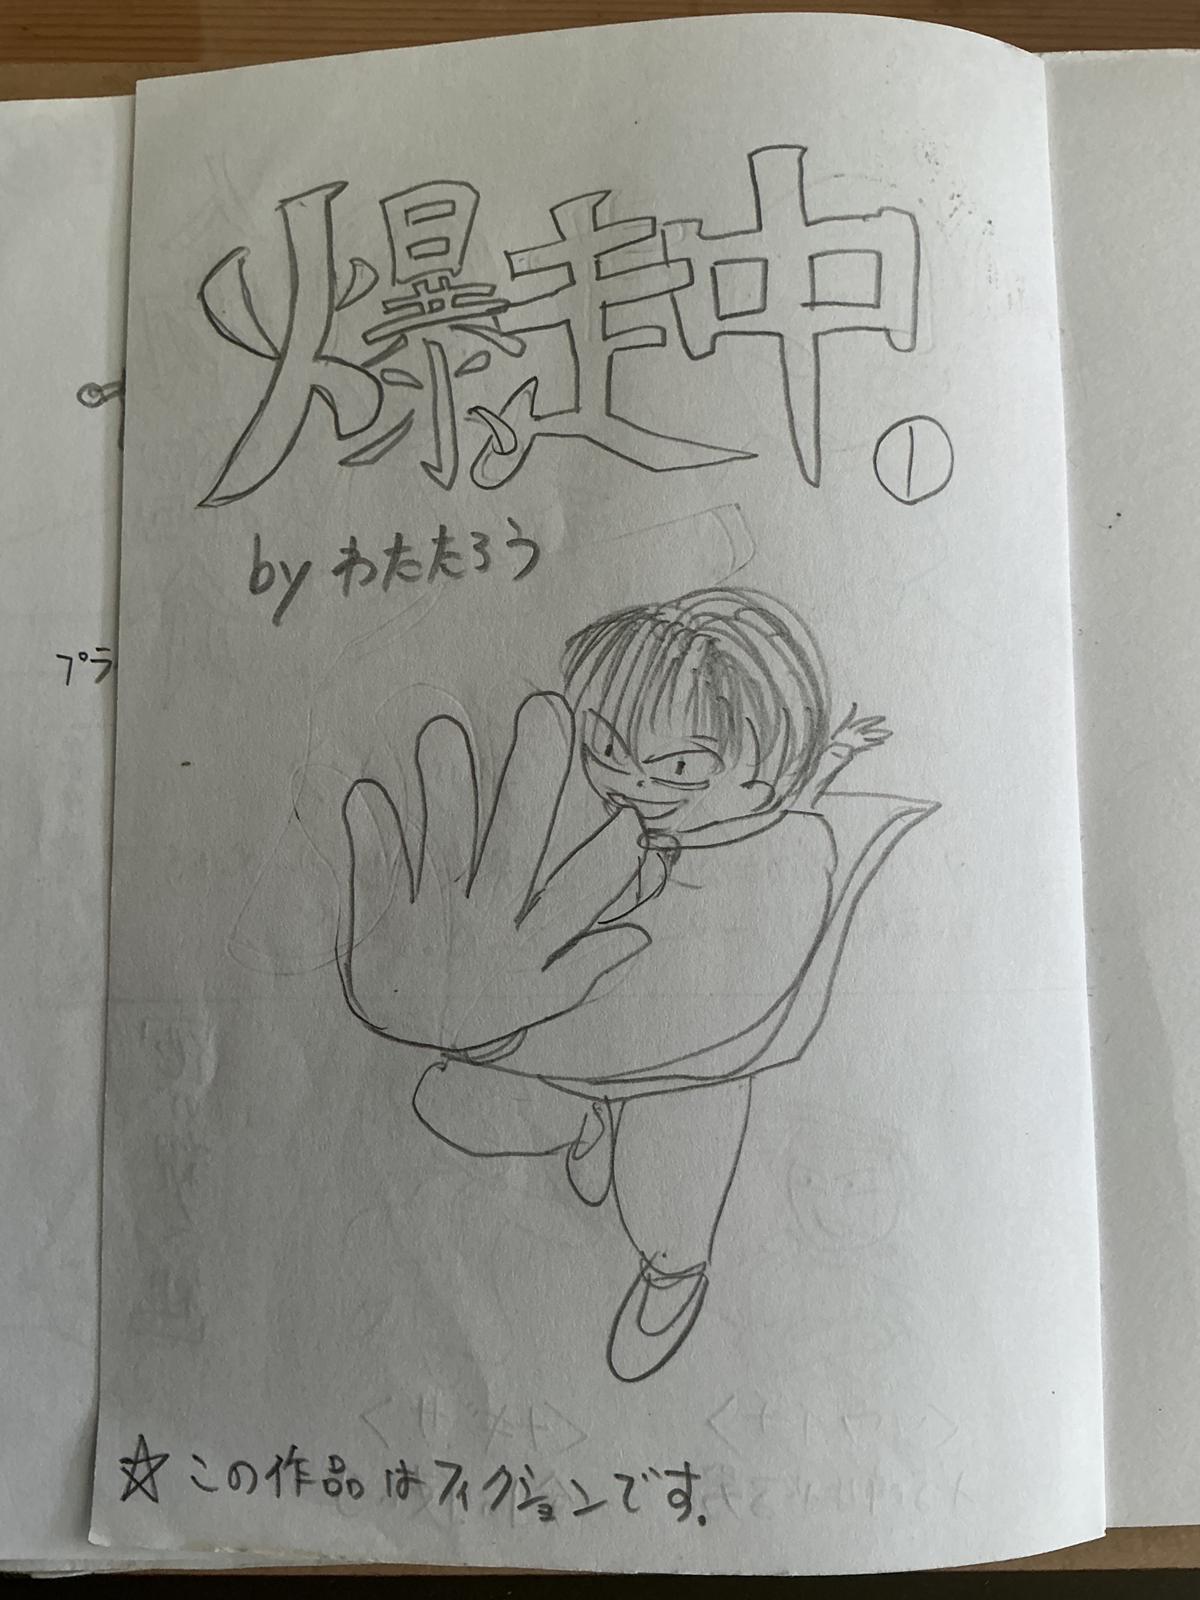 爆走中
①
by わたたろう
プラ
☆この作品はフィクションです.